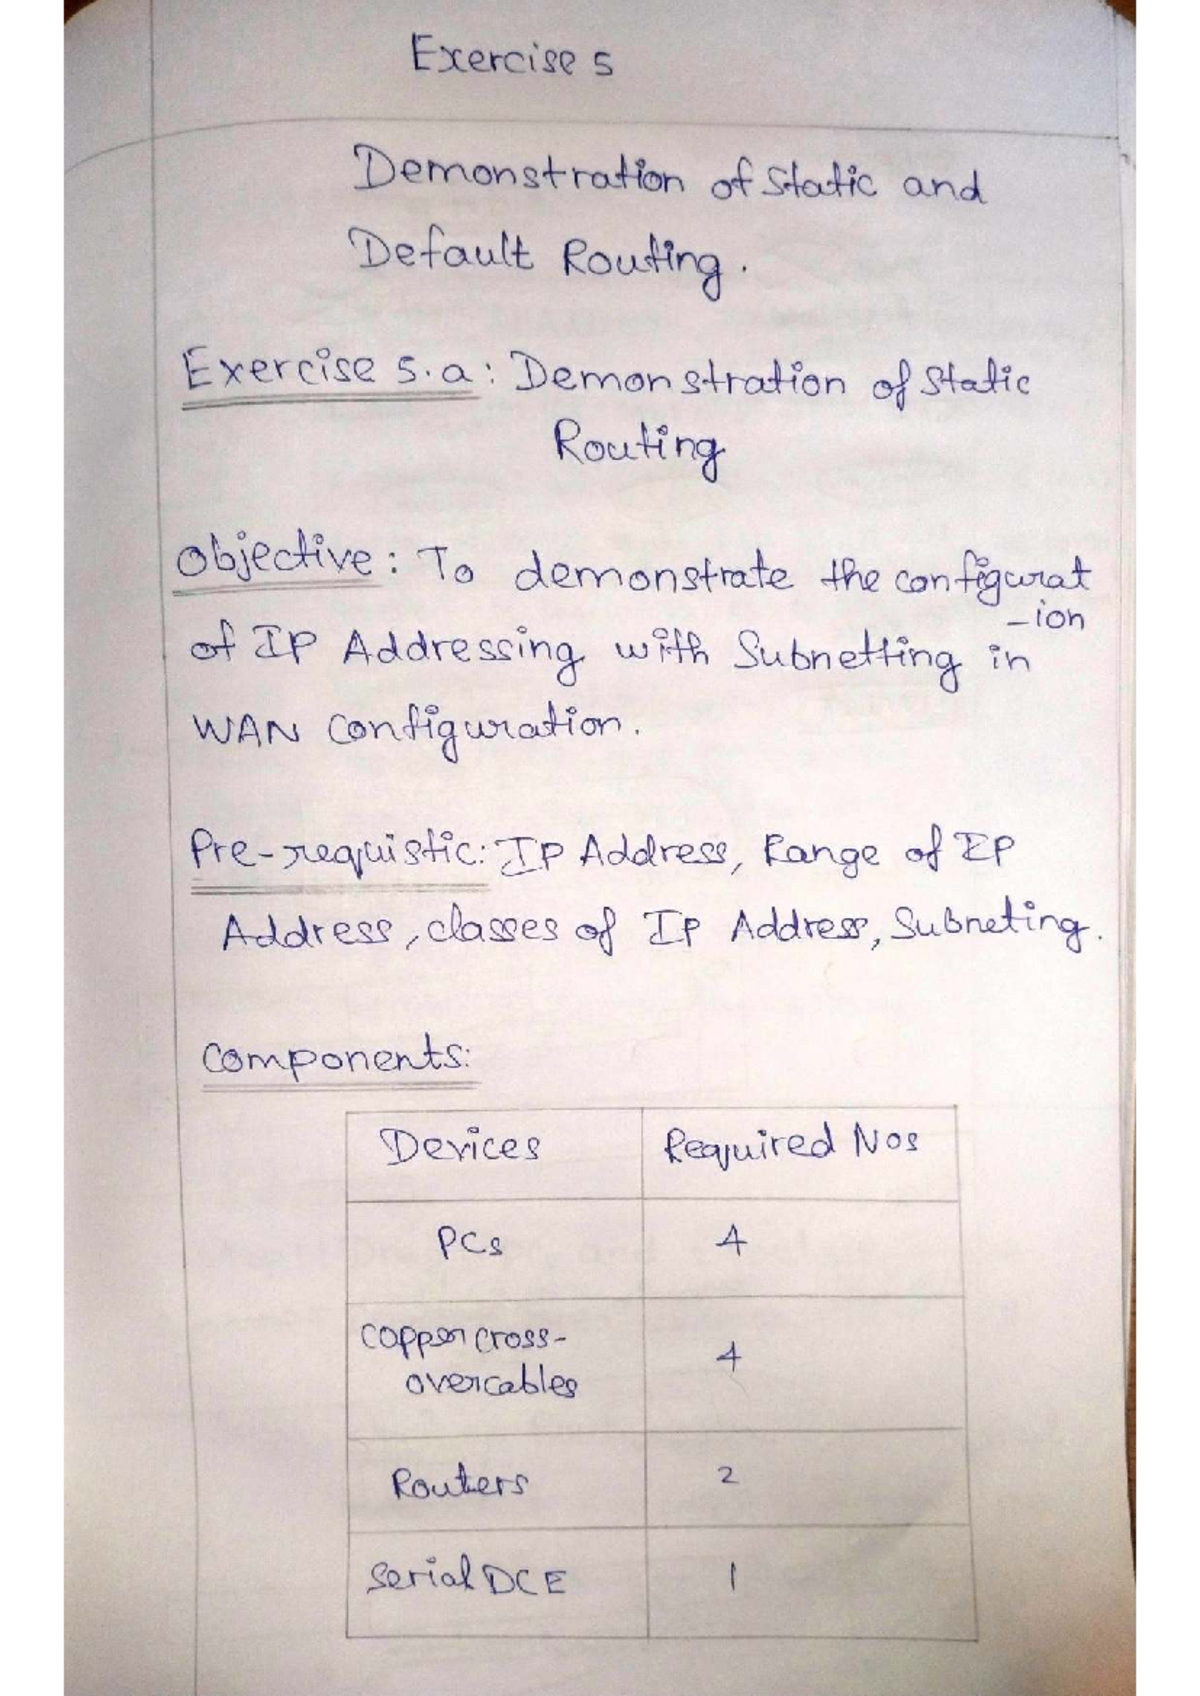 Exercise 5
Demonstration of Static and
Default Routing.
Exercise 5.a: Demonstration of Static
Routing
Objective: To demonstrate the configurat
-ion
of IP Addressing with Subnetting in
WAN Configuration.
Pre-requistic: IP Address, Range of IP
Address, classes of IP Address, Subneting.
Components:
Devices Required Nos
PCs 4
Copper cross-
overcables 4
Routers 2
Serial DCE 1